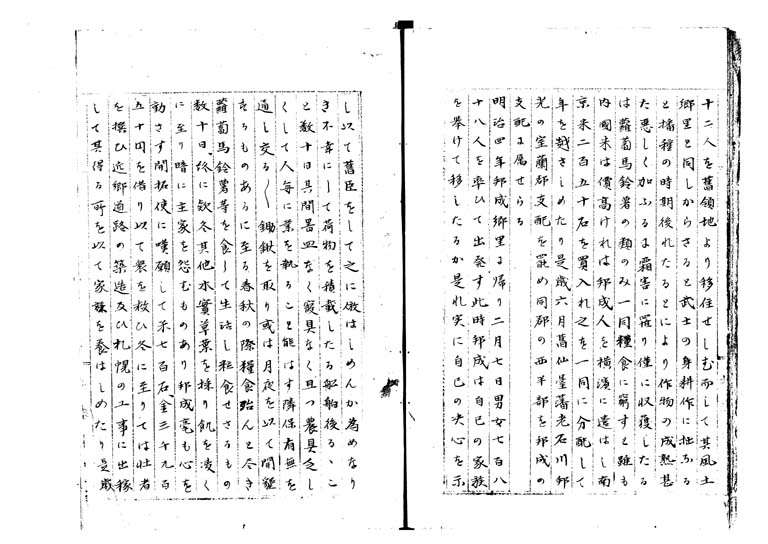 十二人を舊領地より移住せしむ而して其風土
郷里と同しからさると武士の身耕作に拙なる
と播種の時期後れたるとにより作物の成熟甚
た悪しく加ふるに霜害に罹り僅に収穫したる
は蘿蔔馬鈴薯の類のみ一同糧食に窮すと雖も
内國米は價髙けれは邦成人を横濱に遣はし南
京米二百五十石を買入れ之を一同に分配して
年を越さしめたり是歳六月舊仙臺藩老石川邦
光の室蘭郡支配を罷め同郡の西半部を邦成の
支配に属せらる
明治四年邦成郷里に帰り二月七日男女七百八
十八人を率ひて出発す此時邦成は自己の家族
を挙けて移したるか是れ実に自己の決心を示
し以て舊臣をして之に倣はしめんか為めなり
き不幸にして荷物を積載したる船舶後るゝこ
と数十日其間器皿なく寝具なく且つ農具乏し
くして人毎に業を執ること能はす隣保有無を
通し交る〳〵鋤鍬を取り或は月夜を以て開墾
するものあるに至る春秋の際糧食殆んと尽き
蘿蔔馬鈴薯等を食して生活し粒食せさるもの
数十日、終に欵冬其他木實草葉を採り飢を凌く
に至り暗に主家を怨むものあり邦成毫も心を
動さす開拓使に嘆願して米七百石、金三千九百
五十円を借り以て衆を救ひ冬に至りては壮者
を撰ひ近郷道路の築造及ひ札幌の工事に出稼
して其得る所を以て家族を養はしめたり是歳